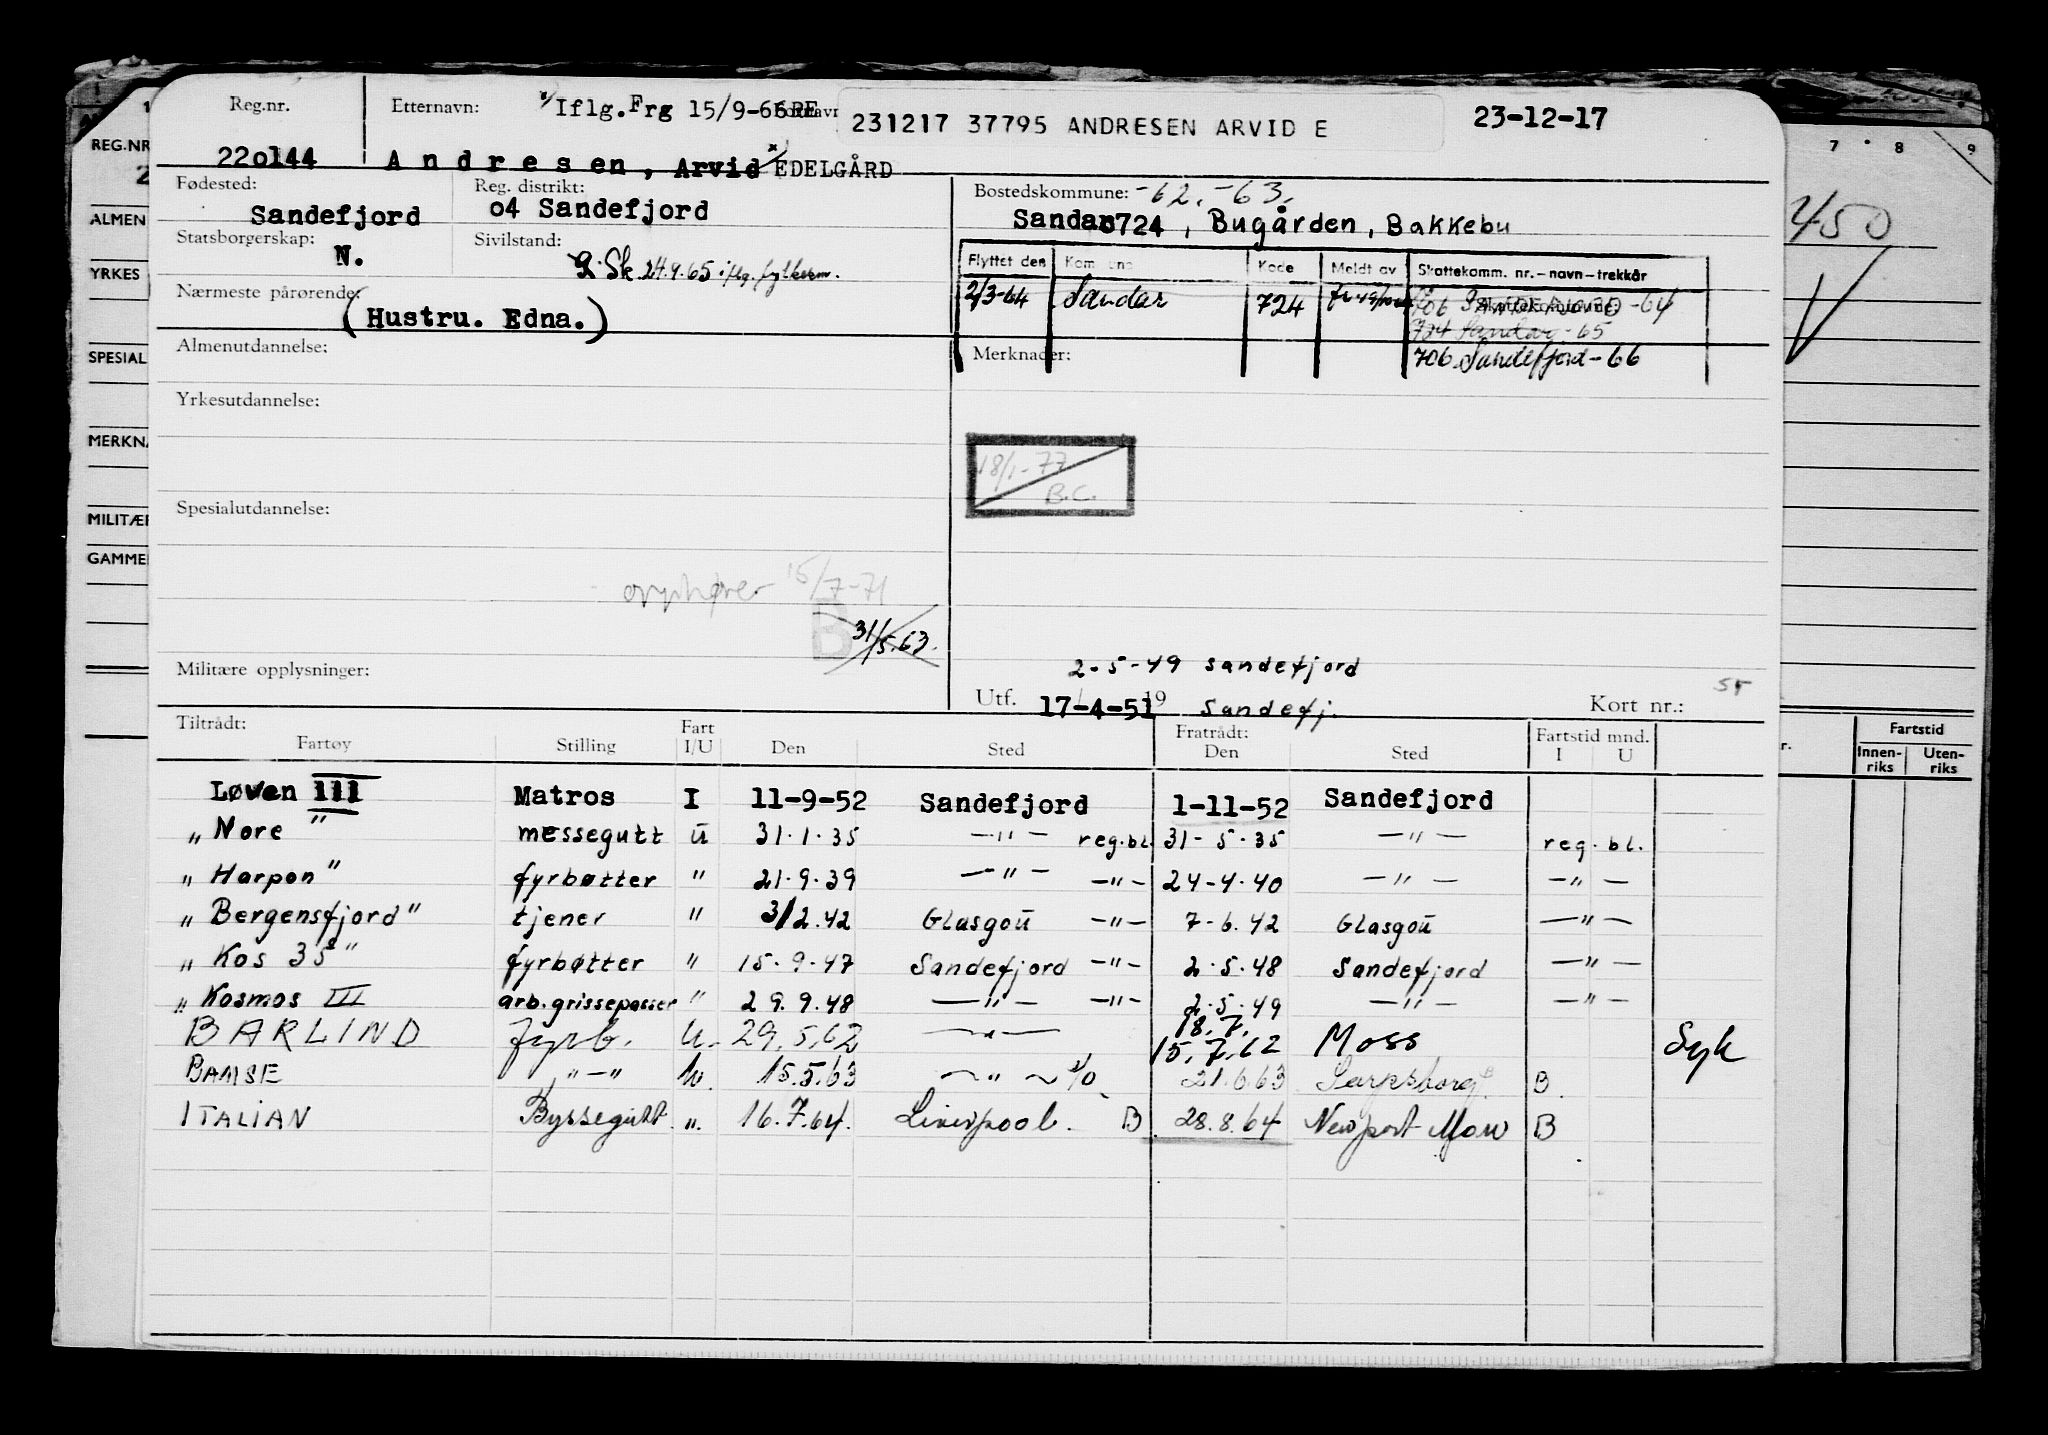 Reg.nr. Etternavn: x/ Iflg. Frg 15/9-66 RE 231217 37795 ANDRESEN ARVID E 23-12-17
220144 Andresen, Arvid x/ EDELGÅRD
Fødested: Reg. distrikt: Bostedskommune: -62.-63.
Sandefjord 04 Sandefjord Sandar 0724, Bugården, Bakkebu
Statsborgerskap: Sivilstand:
N. Sk. 24.9.65 iflg. fylkesm.
Flyttet den Kommune Kode Meldt av Skattekomm. nr.-navn-trekkår
2/3-64 Sandar 724 706 SANDEFJORD -64
724 Sandar -65
706 Sandefjord -66
Nærmeste pårørende:
(Hustru. Edna.)
Almenutdannelse: Merknader:
Yrkesutdannelse:
18/1-77
B.C.
Spesialutdannelse:
opphører 15/7-71
B 31/5.63.
Militære opplysninger:
2-5-49 Sandefjord
Utf. 17-4-51 19 Sandefj. Kort nr.:
Tiltrådt: Fratrådt:
Fartøy Stilling Fart I/U Den Sted Den Sted Fartstid mnd. I U
Løven III Matros I 11-9-52 Sandefjord 1-11-52 Sandefjord
„Nore" messegutt ū 31.1.35 —"— reg.bl. 31-5-35 —"— reg.bl.
„Harpon" fyrbøtter " 21.9.39 —"— —"— 24-4-40 —"— —"—
„Bergensfjord" tjener " 3/2.42 Glasgoū —"— 7-6.42 Glasgoū —"—
„Kos 35" fyrbøtter " 15.9.47 Sandefjord —"— 2.5.48 Sandefjord —"—
„Kosmos III arb.grissepasser " 29.9.48 —"— —"— 2.5.49 —"— —"—
18.7.
BARLIND fyrb. U. 29.5.62 —"— 15.7.62 Moss Syk
BAMSE "—" 15.5.63 —"— 21.6.63 Sarpsborg B B
ITALIAN Byssegutt ". 16.7.64. Liverpool. B 28.8.64 Newport Mon B
REG.NR
2
ALMEN
YRKES
SPESIAL
MERKNA
MILITÆR
GAMME
7 8 9
450
Fartstid
Innen-riks Uten-riks